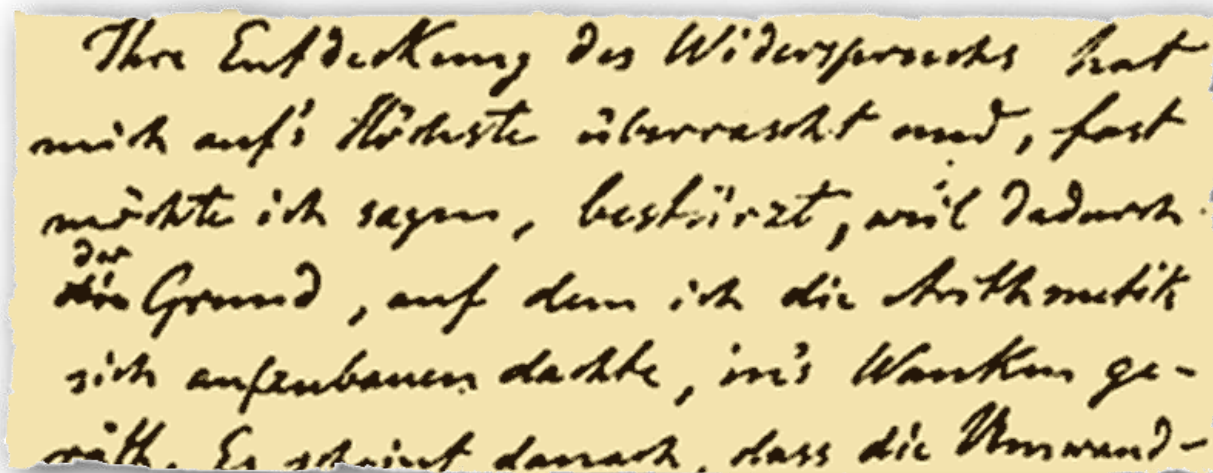 Ihre Entdeckung des Widerspruchs hat
mich auf's Höchste überrascht und, fast
möchte ich sagen, bestürzt, weil dadurch
der
Grund, auf dem ich die Arithmetik
sich aufzubauen dachte, in's Wanken ge-
räth. Es scheint danach, dass die Umwand-